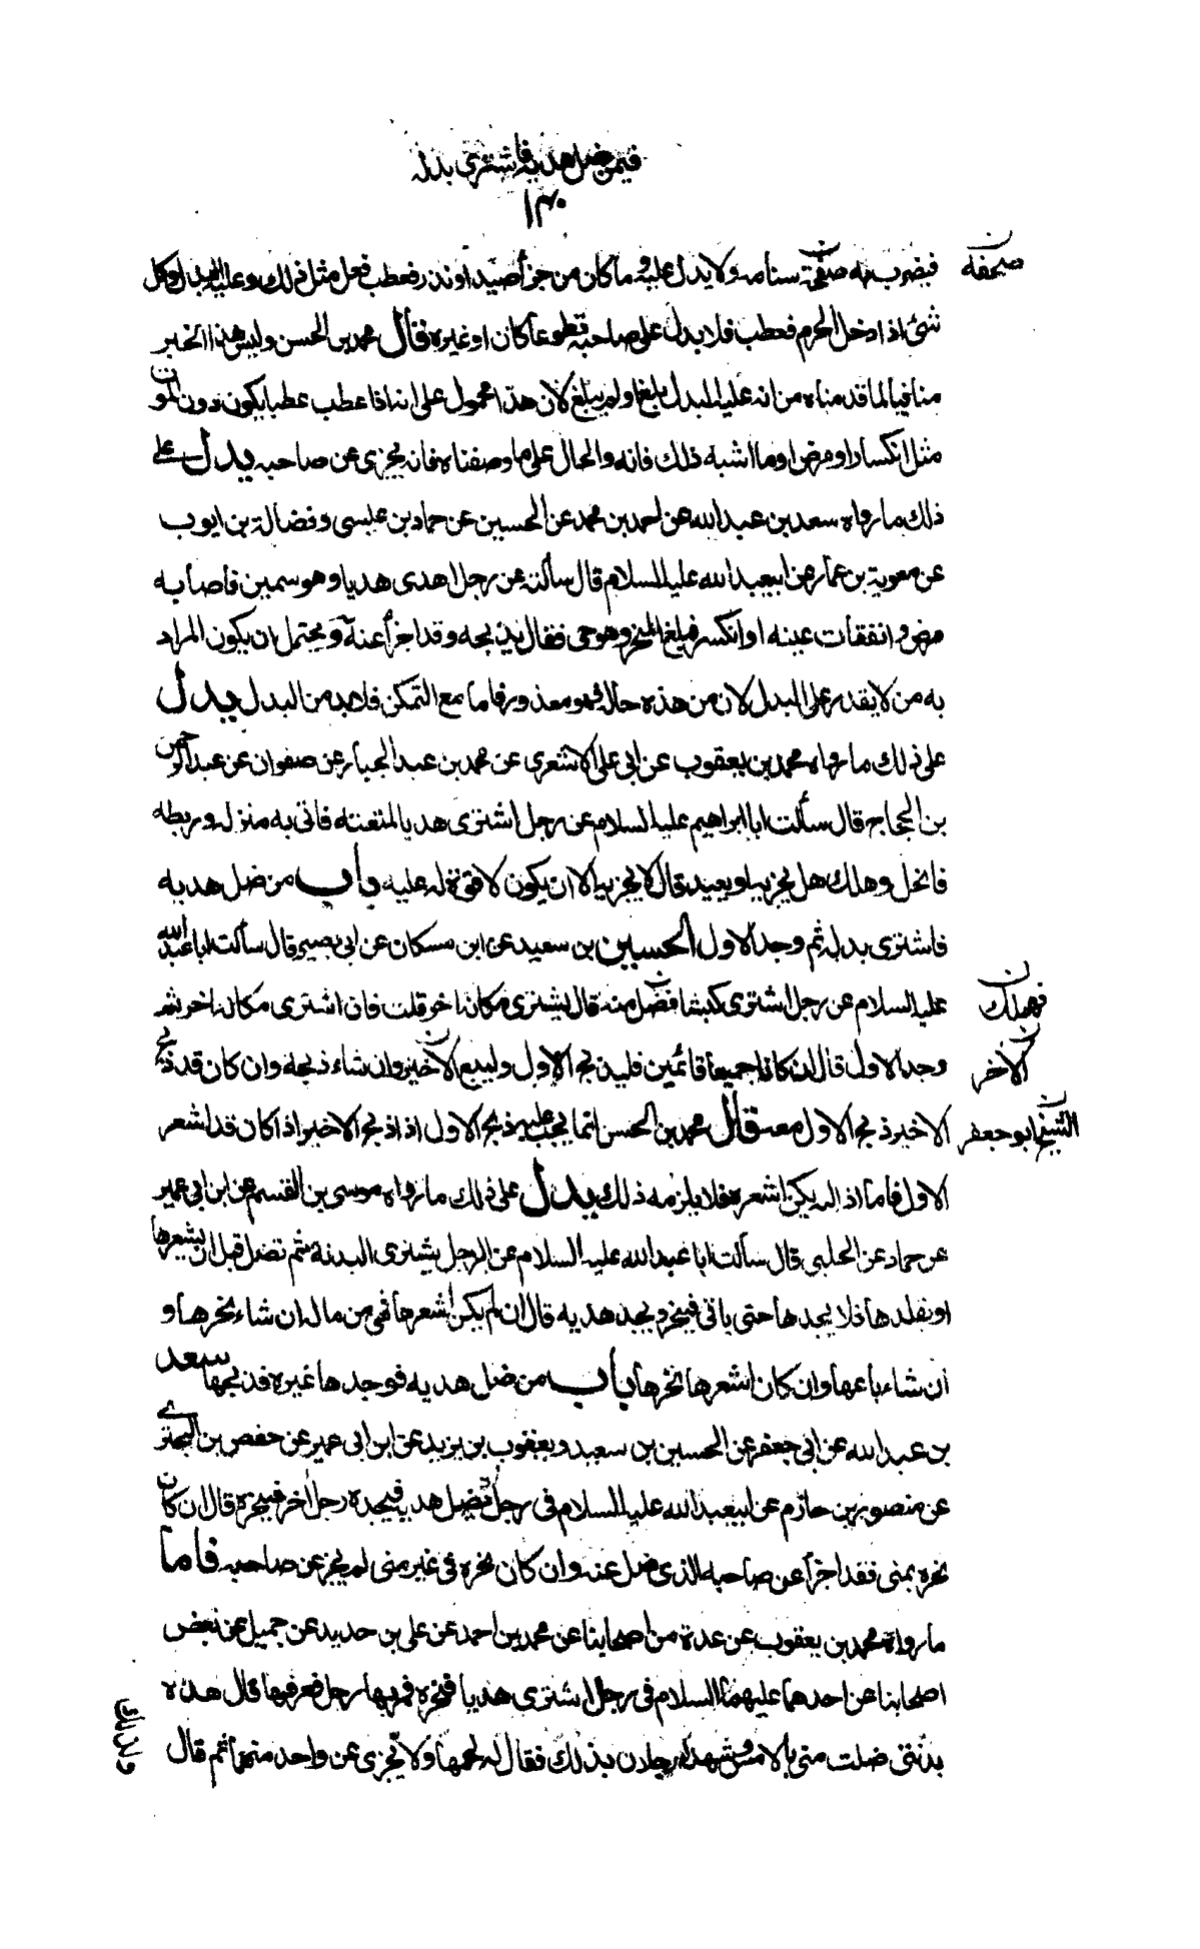 فيمن ضل هديه فاشترى بدله
١٣٠
فيضرب به صفحة سنامه ولا بدل عليه وما كان من جزأ صيد او نذر فعطب فعل مثل ذلك وعليه البدل وكل
صحفه
شئ اذا دخل الحرم فعطب فلا بدل على صاحبه تطوعا كان او غيره فقال محمد بن الحسن وليس هذا الخبر
منافيا لما قدمناه من انه عليه البدل بلغ او لم يبلغ لان هذا محمول على انه اذا عطب عطبا يكون دون الموت
مثل انكسار او مرض او ما اشبه ذلك فانه والحال على ما وصفناه فانه يجزى عن صاحبه يدل على
ذلك ما رواه سعد بن عبد الله عن احمد بن محمد عن الحسين عن حماد بن عيسى وفضالة بن ايوب
عن معوية بن عمار عن ابيعبد الله عليه السلام قال سألته عن رجل اهدى هديا وهو سمين فاصابه
مرض وانفقات عينه او انكسر فبلغ المنحر وهو حى فقال يذبحه وقد اجزأ عنه ويحتمل ان يكون المراد
به من لا يقدر على البدل لان من هذه حاله فهو معذور فاما مع التمكن فلابد من البدل يدل
على ذلك ما رواه محمد بن يعقوب عن ابى على الاشعرى عن محمد بن عبد الجبار عن صفوان عن عبد الرحمن
بن الحجاج قال سألت ابا ابراهيم عليه السلام عن رجل اشترى هديا لمتعته فاتى به منزله وربطه
فانحل وهلك هل يجزيه او يعيد قال لا يجزيه الا ان يكون لا قوة له عليه باب من ضل هديه
فاشترى بدله ثم وجد الاول الحسين بن سعيد عن ابن مسكان عن ابى بصير قال سألت ابا عبد الله
عليه السلام عن رجل اشترى كبشا فضل منه قال يشترى مكانه اخر قلت فان اشترى مكانه اخر ثم
فهلك ن
وجد الاول قال ان كانا جميعا قائمين فليذبح الاول وليبع الاخير وان شاء ذبحه وان كان قد ذبح
الاخر ن
الاخير ذبح الاول معه قال محمد بن الحسن انما يجب عليه ذبح الاول اذا ذبح الاخير اذا كان قد اشعر
الشيخ ابو جعفر
الاول فاما اذا لم يكن اشعره فلا يلزمه ذلك يدل على ذلك ما رواه موسى بن القسم عن ابن ابى عمير
عن حماد عن الحلبي قال سألت ابا عبد الله عليه السلام عن الرجل يشترى البدنة ثم تضل قبل ان يشعرها
او يقلدها فلا يجدها حتى ياتى فينحر ويجد هديه قال ان لم يكن اشعرها فهى من ماله ان شاء نحرها و
ان شاء باعها وان كان اشعرها نحرها باب من ضل هديه فوجدها غيره فذبحها سعد
بن عبد الله عن ابى جعفر عن الحسين بن سعيد ويعقوب بن يزيد عن ابن ابى عمير عن حفص بن البخترى
عن منصور بن حازم عن ابيعبد الله عليه السلام فى رجل تضل هديه فيجده رجل اخر فينحره قال ان كان
نحره بمنى فقد اجزأ عن صاحبه الذى ضل عنه وان كان نحره فى غير منى لم يجز عن صاحبه فاما
ما رواه محمد بن يعقوب عن عدة من اصحابنا عن محمد بن احمد عن على بن حديد عن جميل عن بعض
اصحابنا عن احدهما عليهما السلام فى رجل اشترى هديا فنحره فمر بها رجل فعرفها فقال هذه
بدنتى ضلت منى بالامس وشهد له رجلان بذلك فقال له لحمها ولا تجزى عن واحد منهما ثم قال
ولذلك